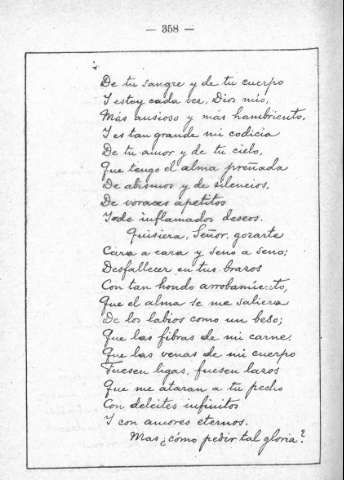 — 358 —
De tu sangre y de tu cuerpo
Y estoy cada vez, Dios mío,
Más ansioso y más hambriento,
Y es tan grande mi codicia
De tu amor y de tu cielo,
Que tengo el alma preñada
De abismos y de silencios,
De voraces apetitos
Y de inflamados deseos.
Quisiera, Señor, gozarte
Cara a cara y seno a seno;
Desfallecer en tus brazos
Con tan hondo arrobamiento,
Que el alma se me saliera
De los labios como un beso;
Que las fibras de mi carne,
Que las venas de mi cuerpo
Fuesen ligas, fuesen lazos
Que me ataran a tu pecho
Con deleites infinitos
Y con amores eternos.
Mas ¿cómo pedir tal gloria?